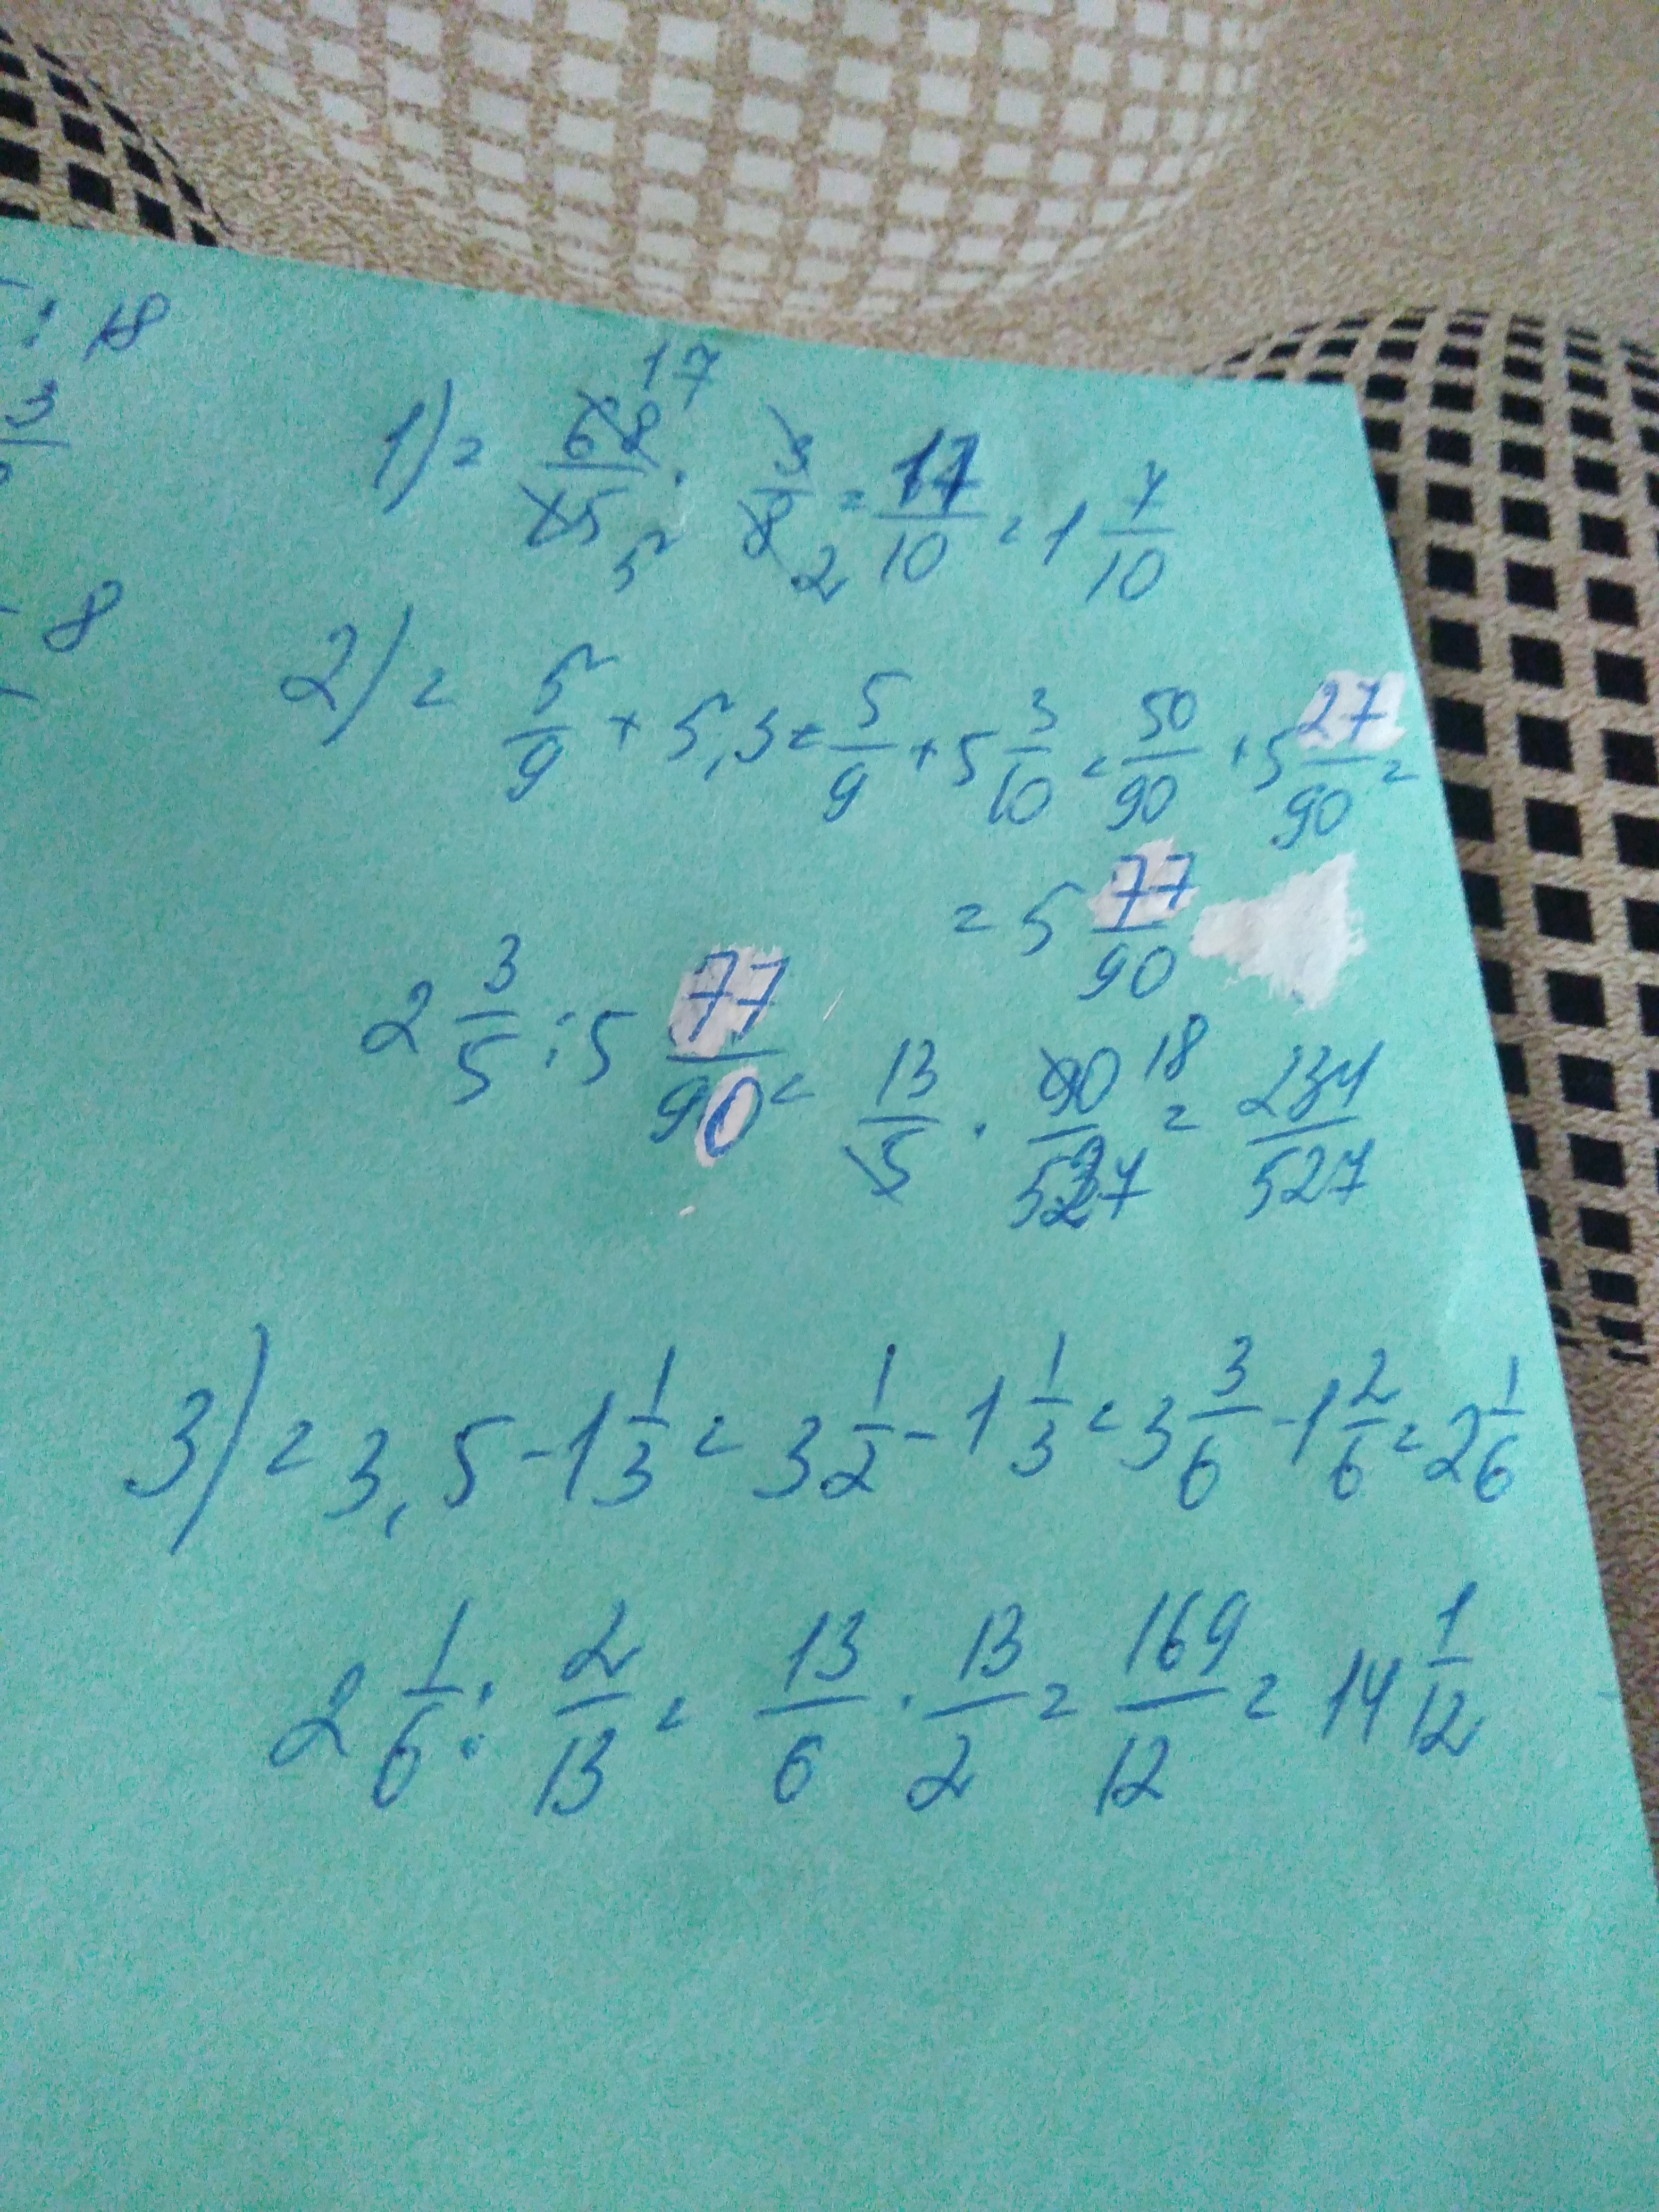 : 18
3
1) = 68/15 17 5 · 3/8 2 = 17/10 = 1 7/10
- 8
2) = 5/9 + 5,3 = 5/9 + 5 3/10 = 50/90 + 5 27/90 =
= 5 77/90
2 3/5 : 5 77/90 = 13/5 · 90/527 18 = 234/527
3) = 3,5 - 1 1/3 = 3 1/2 - 1 1/3 = 3 3/6 - 1 2/6 = 2 1/6
2 1/6 : 2/13 = 13/6 · 13/2 = 169/12 = 14 1/12